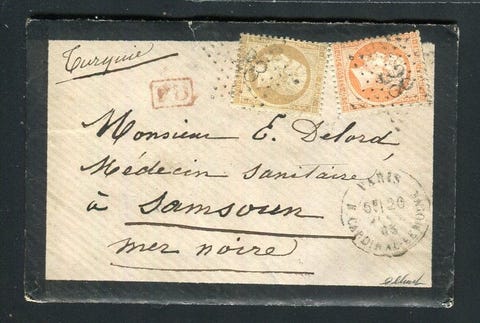 Turquie
PD
Monsieur E. Delord
Médecin Sanitaire
à Samsoun
mer noire
PARIS
R. CARDINAL-LEMOINE